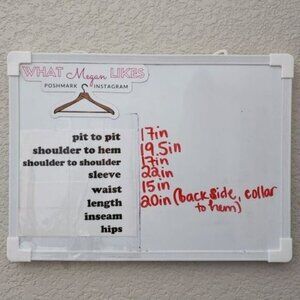 WHAT Megan LIKES
POSHMARK INSTAGRAM
pit to pit 17in
shoulder to hem 19.5in
shoulder to shoulder 17in
sleeve 22in
waist 15in
length 20in (backside, collar
to hem)
inseam
hips